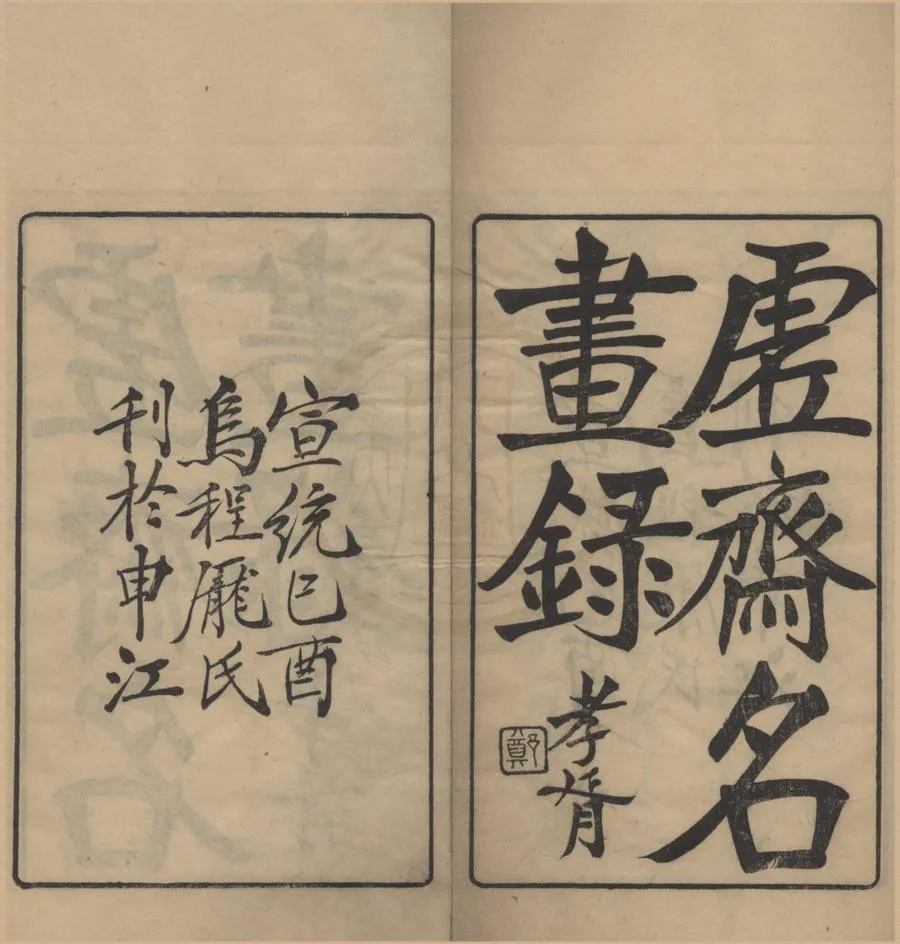 虛齋名
畫録
孝胥
鄭
宣統己酉
烏程龐氏
刊於申江